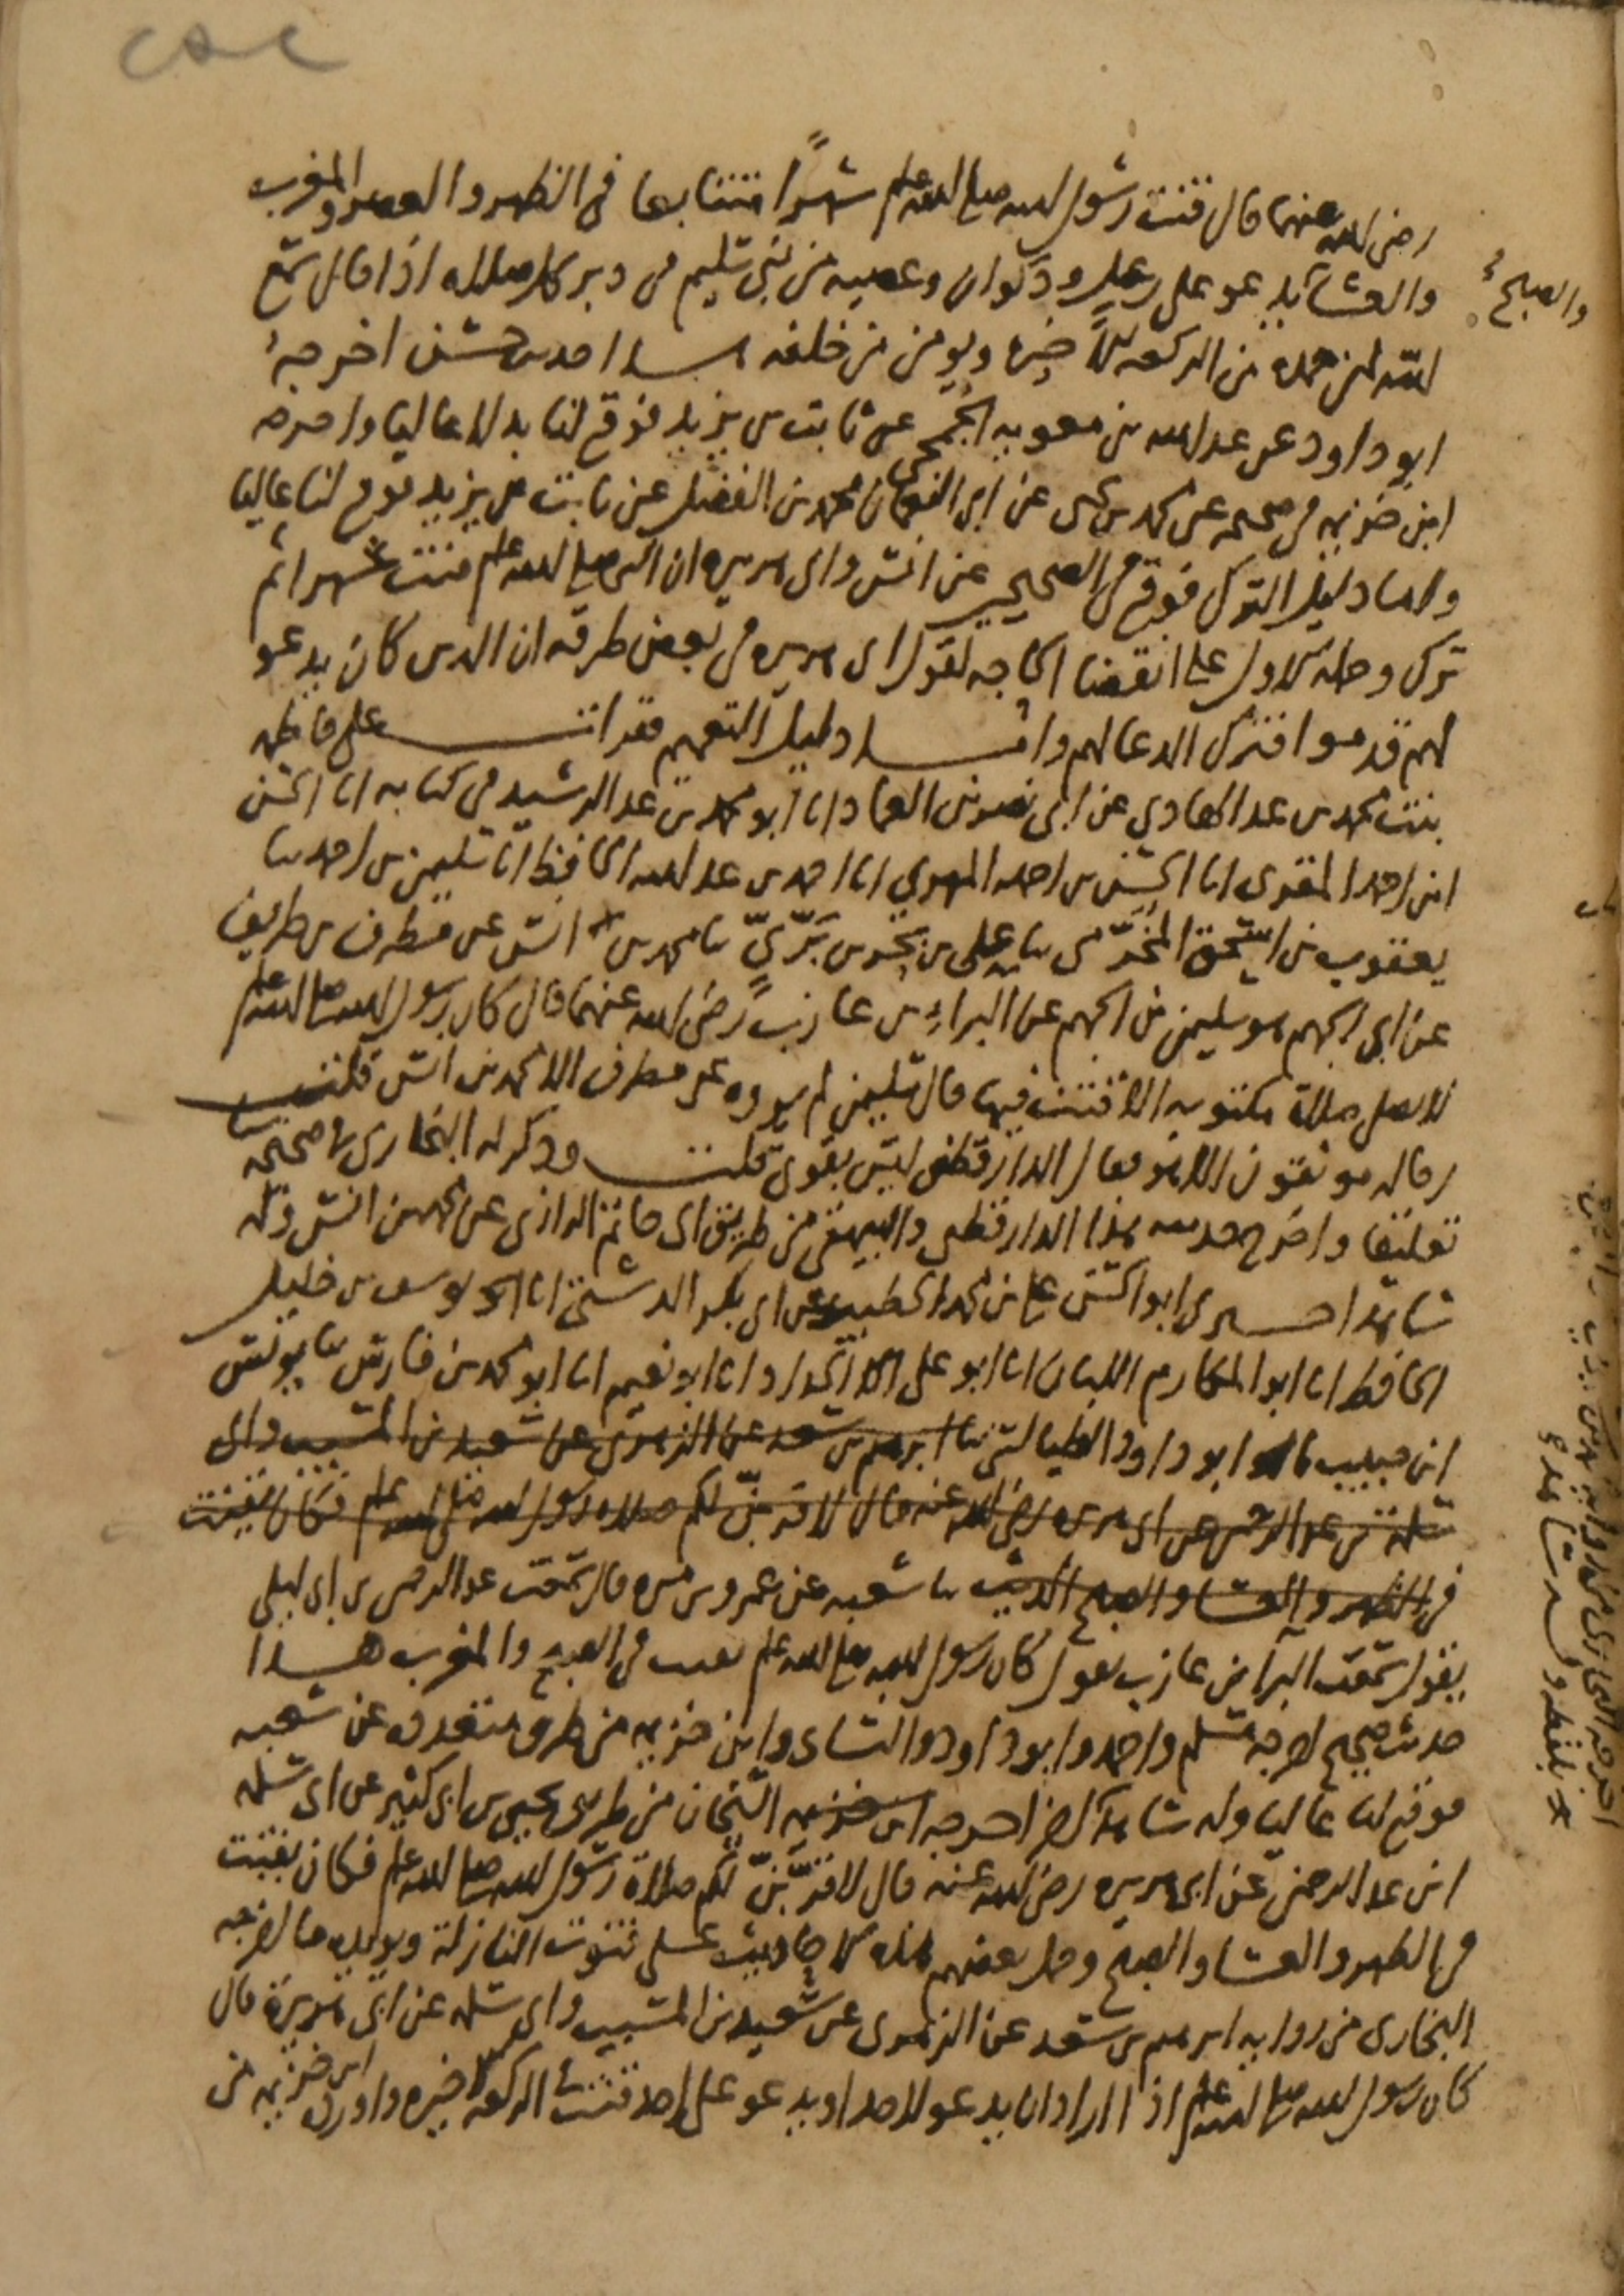 رضي الله عنهما قال قنت رسول الله صلى الله عليه وسلم شهرًا متتابعا في الظهر والعصر والمغرب
والعشا يدعو على رعل وذكوان وعصيه من بني سليم في دبر كل صلاه اذا قال سمع
والصبح
الله لمن حمده من الركعه الاخيره ويومن من خلفه هذا حديث حسن اخرجه
ابو داود عن عبد الله بن معويه الجمحي عن ثابت بن يزيد فوقع لنا بدلا عاليا واخرجه
ابن خزيمه في صحيحه عن محمد بن يحيى عن ابي النعمان محمد بن الفضل عن ثابت بن يزيد فوقع لنا عاليا
واما دليل الترك فوقع في الصحيحين عن انس وابي هريره ان النبي صلى الله عليه وسلم قنت شهرا ثم
ترك وحمله الاول على انقضا الحاجه لقول ابي هريره في بعض طرقه ان الذين كان يدعو
لهم قدموا فترك الدعا لهم واما دليل التعميم فقرات على فاطمه
بنت محمد بن عبد الهادي عن ابي نصر بن العماد انا ابو محمد بن عبد الرشيد في كتابه انا الحسن
ابن احمد المقرى انا الحسن بن احمد المهري انا احمد بن عبد الله الحافظ انا سليمن بن احمد ثنا
يعقوب بن اسحق المخرّمي ثنا علي بن بحر بن بَرّيّ ثنا محمد بن انس عن مطرف بن طريف
عن ابي الجهم هو سليمن بن الجهم عن البراء بن عازب رضي الله عنهما قال كان رسول الله صلى الله عليه وسلم
لا يصلي صلاة مكتوبه الا قنت فيها قال سليمن لم يروه عن مطرف الا محمد بن انس قلت
رجاله موثقون الا هو فقال الدارقطني ليس بقوي قلت وذكر له البخاري في صحيحه
تعليقا واخرج حديثه هذا الدارقطني والبيهقي من طريق ابي حاتم الرازي عن محمد بن انس وله
شاهد اخبرني ابو الحسن علي بن محمد الخطيب عن ابي بكر الدشتي انا يوسف بن خليل
الحافظ انا ابو المكارم اللبان انا ابو علي الحداد انا ابو نعيم انا ابو محمد بن فارس ثنا يونس
ابن حبيب ثنا ابو داود الطيالسي ثنا ابرهيم بن سعد عن الزهري عن سعيد بن المسيب وابي
سلمة بن عبد الرحمن عن ابي هريره رضي الله عنه قال لاقربنّ لكم صلاه رسول الله صلى الله عليه وسلم فكان يقنت
في الظهر والعشا والصبح الحديث ثنا شعبه عن عمرو بن مره قال سمعت عبد الرحمن بن ابي ليلى
يقول سمعت البرا بن عازب يقول كان رسول الله صلى الله عليه وسلم يقنت في الصبح والمغرب هذا
حديث صحيح اخرجه مسلم واحمد وابو داود والنساي وابن خزيمه من طرق متعدده عن شعبه
فوقع لنا عاليا وله شاهد اخر اخرجه ابن خزيمه الشيخان من طريق يحيى بن ابي كثير عن ابي سلمه
ابن عبد الرحمن عن ابي هريره رضي الله عنه قال لاقربنّ لكم صلاة رسول الله صلى الله عليه وسلم فكان يقنت
في الظهر والعشا والصبح وحمل بعضهم هذه الاحاديث على قنوت النازلة ويويده ما اخرجه
البخاري من روايه ابرهيم بن سعد عن الزهري عن سعيد بن المسيب وابي سلمه عن ابي هريرة قال
كان رسول الله صلى الله عليه وسلم اذا اراد ان يدعو لاحد او يدعو على احد قنت في الركعه الاخيره واورده ابن خزيمه من